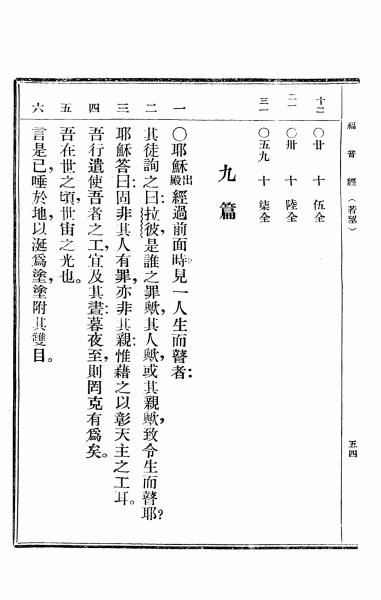 福音經（若望）
五四
十二 〇廿 十 伍全
二一 〇卅 十 陸全
三一 〇五九 十 柒全
九篇
一 〇耶穌出殿經過前面時見一人生而瞽者：
二 其徒詢之曰：拉彼是誰之罪歟，其人歟，或其親歟，致令生而瞽耶？
三 耶穌答曰：固非其人有罪，亦非其親：惟藉之以彰天主之工耳。
四 吾行遣使吾者之工宜及其晝：暮夜至，則罔克有爲矣。
五 吾在世之頃，世宙之光也。
六 言是，已唾於地，以涎爲塗，塗附其雙目。